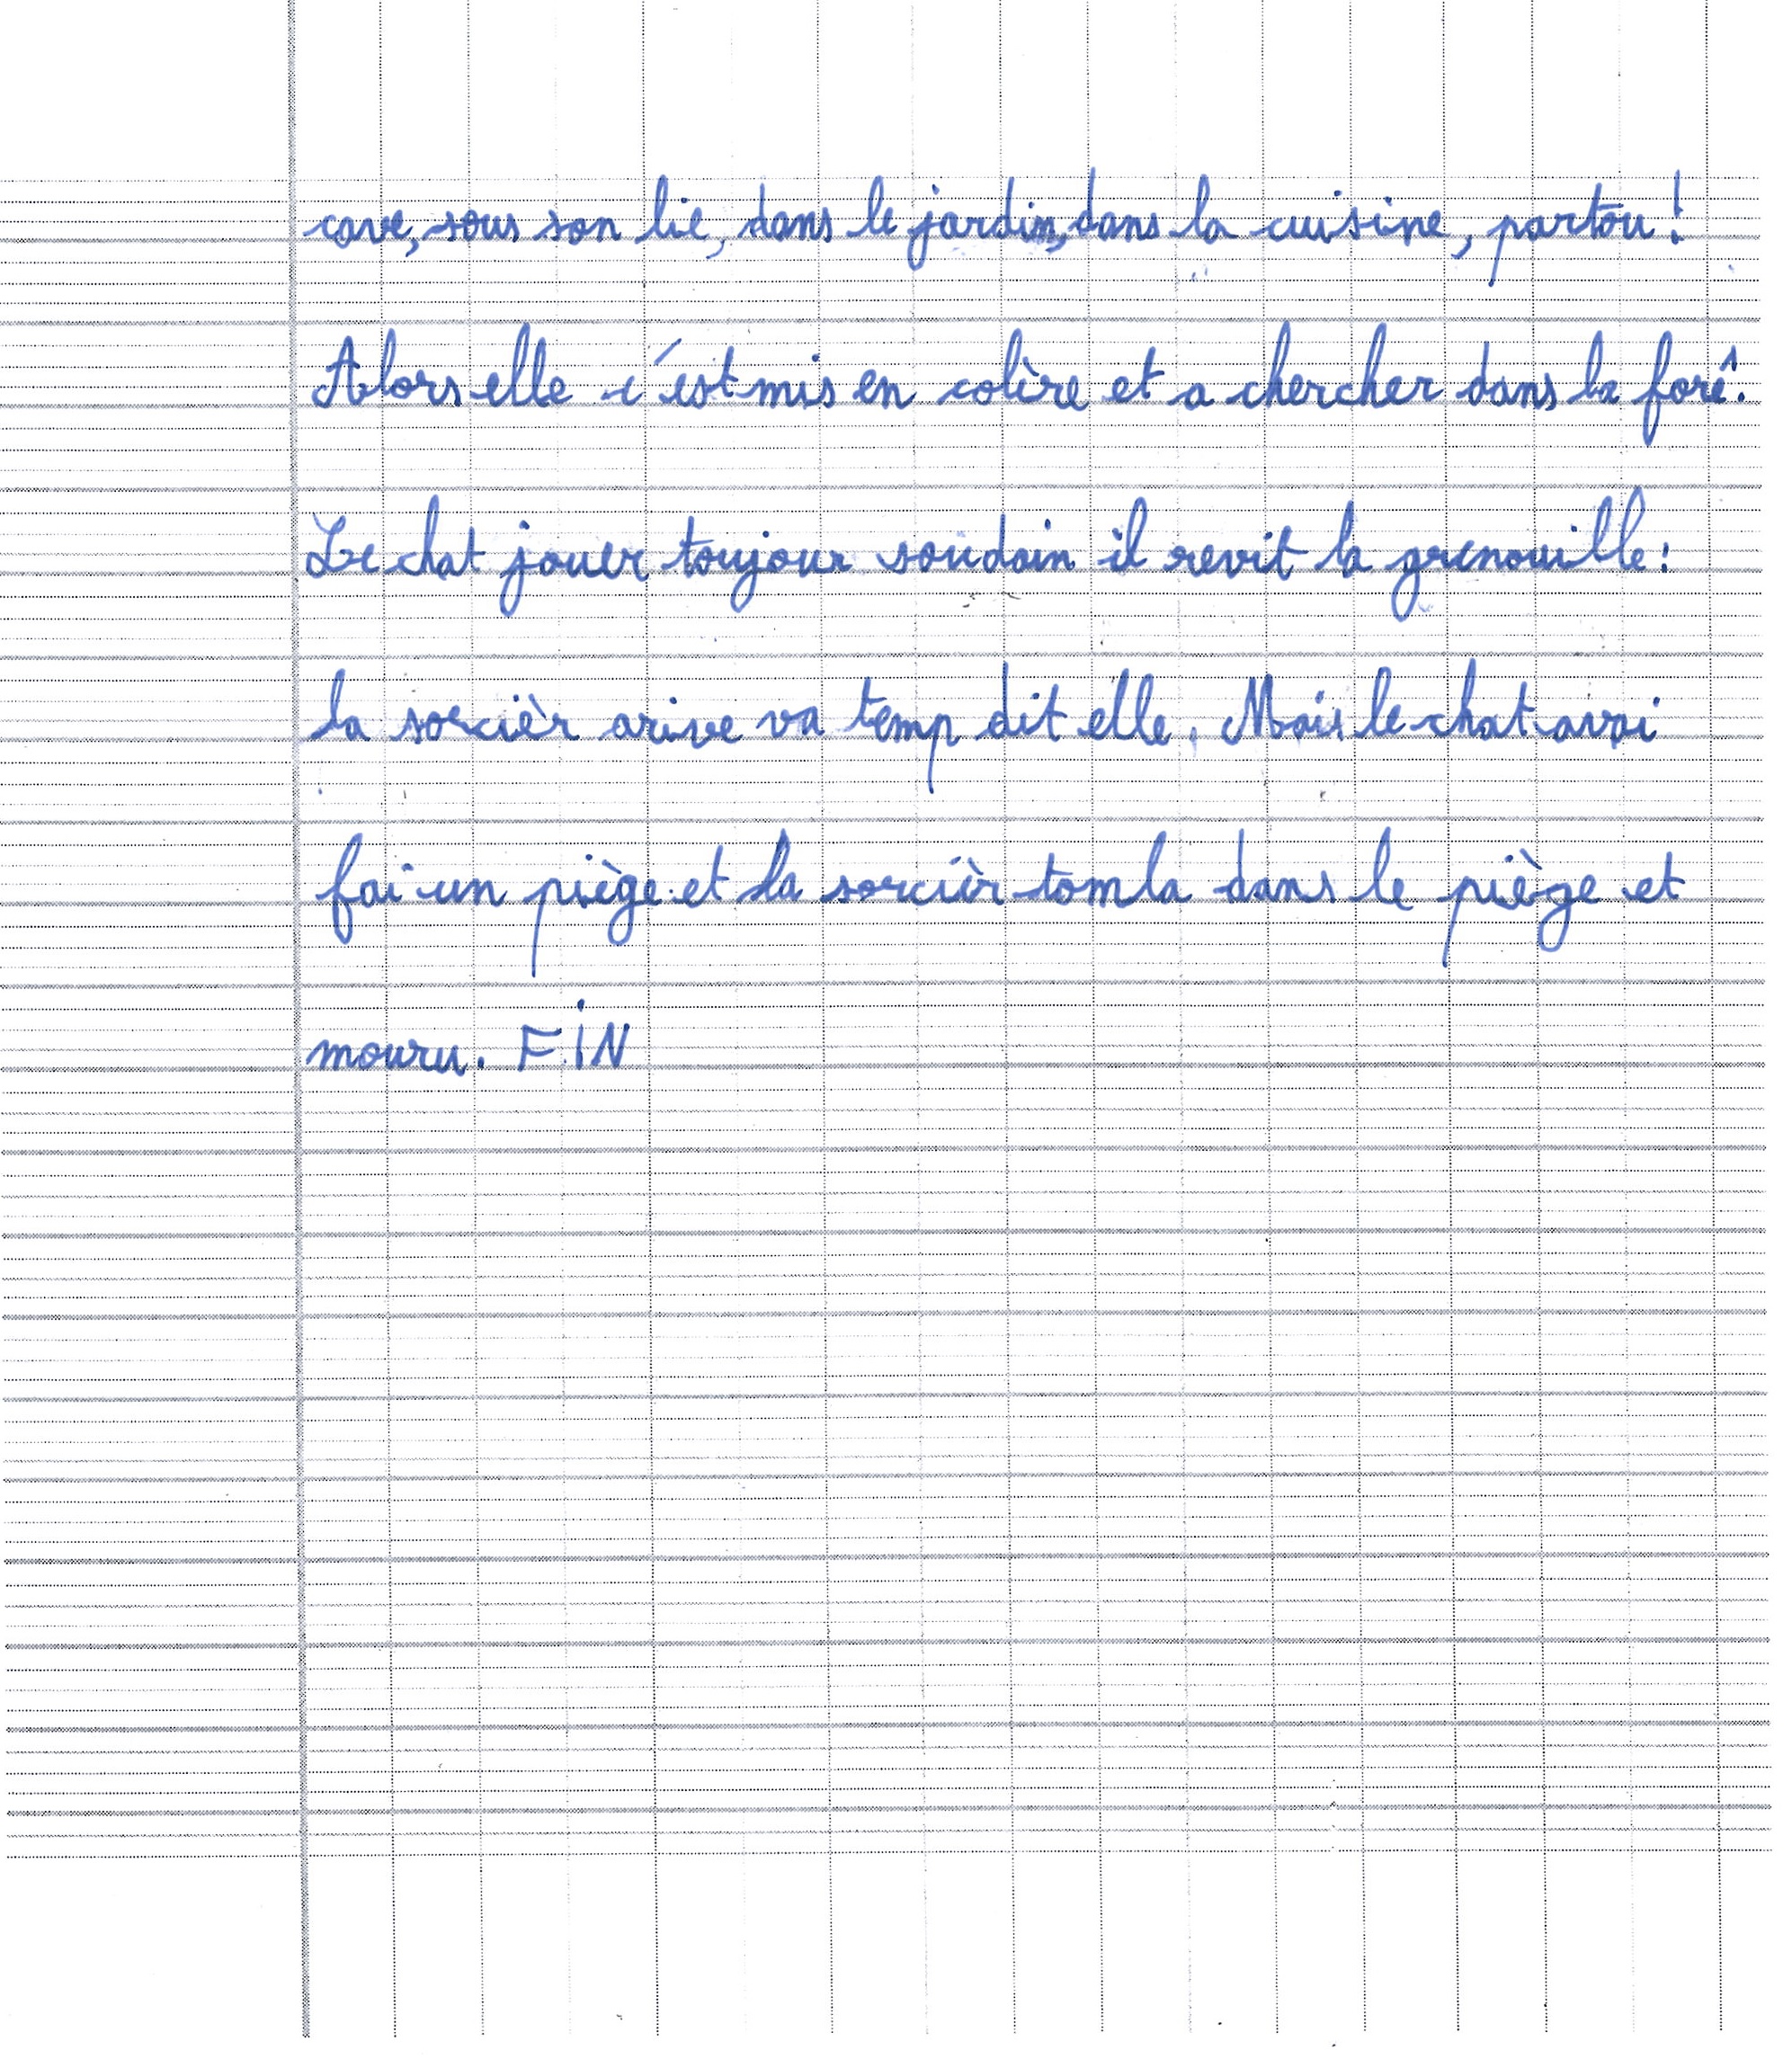 cave, sous son lie, dans le jardin, dans la cuisine, partou!
Alors elle c'est mis en colère et a chercher dans la forê.
Le chat jouer toujour soudain il revit la grenouille:
la sorcièr arive va temp dit elle. Mais le chat avai
fai un piège et la sorcièr tomla dans le piège et
mouru. FIN